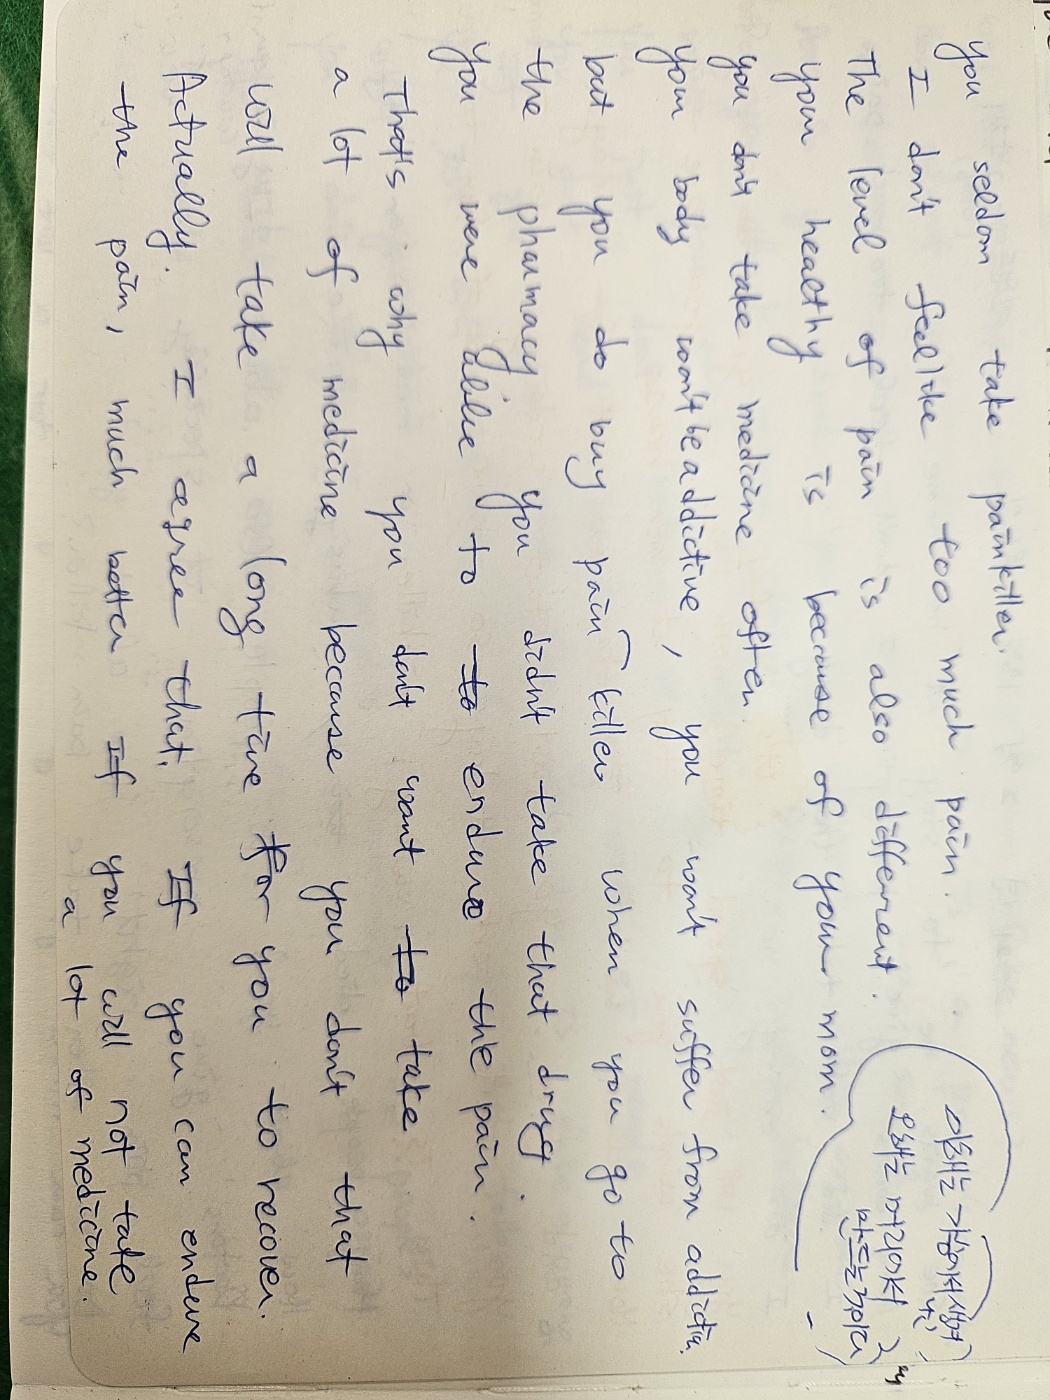 you seldom take painkiller.
I don't feel like too much pain.
The level of pain is also different.
your healthy is because of your mom.
이해는 가슴에서
오해는 머리에서
만드는 것이다
you don't take medicine often.
your body won't be addictive, you won't suffer from addictio
but you do buy pain killer when you go to
the pharmacy. you didn't take that drug.
you were able to to endure the pain.
That's why you don't want to take
a lot of medicine because you don't that
will take a long time for you to recover.
Actually. I agree that. If you can endure
the pain, much better If you will not take
a lot of medicine.